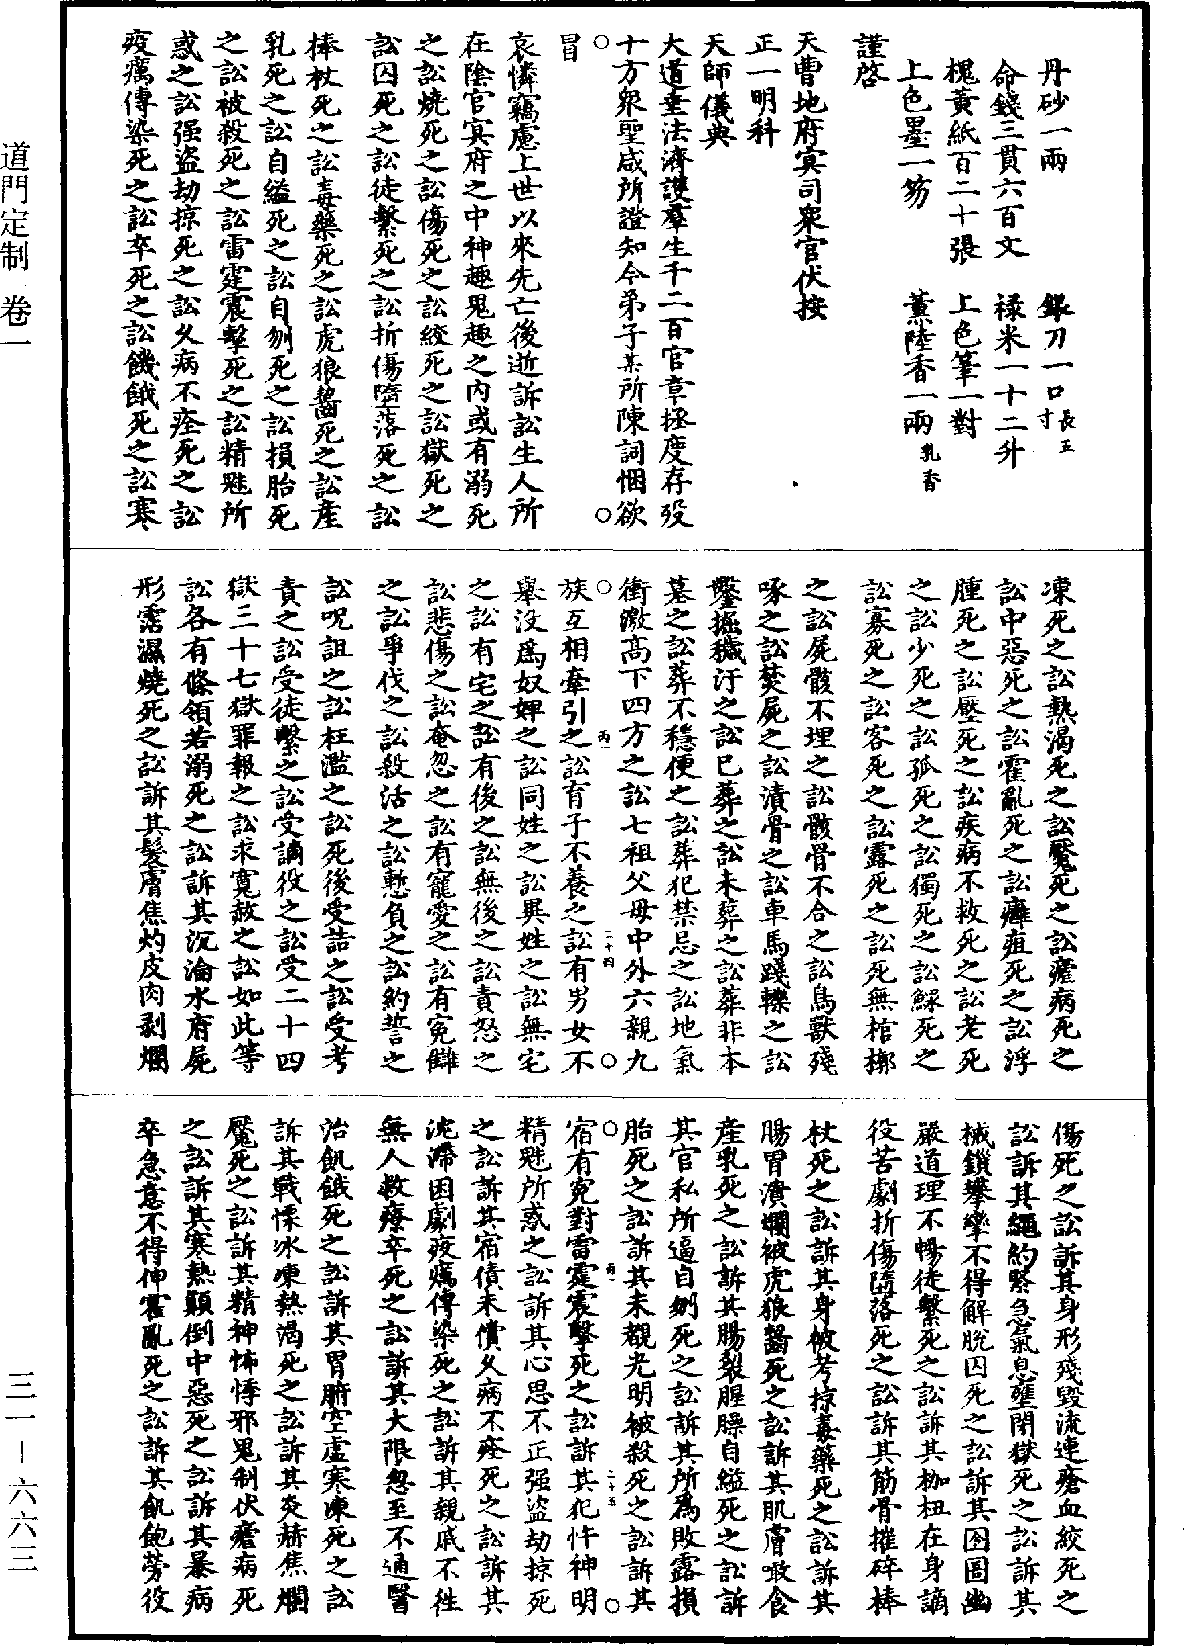 道門定制　卷一
丹砂一兩　銀刀一口長五寸
命錢三貫六百文　祿米一十二升
槐黃紙百二十張　上色筆一對
上色墨一笏　薰陸香一兩乳香
謹啓
天曹地府冥司衆官伏按
正一明科
天師儀典
大道垂法濟護羣生千二百官章拯度存歿
十方衆聖咸所證知今弟子某所陳詞悃欲
冒
哀憐竊慮上世以來先亡後逝訴訟生人所
在陰官冥府之中神趣鬼趣之內或有溺死
之訟燒死之訟傷死之訟絞死之訟獄死之
訟囚死之訟徒繫死之訟折傷墮落死之訟
棒杖死之訟毒藥死之訟虎狼齧死之訟產
乳死之訟自縊死之訟自刎死之訟損胎死
之訟被殺死之訟雷霆震擊死之訟精魅所
惑之訟强盜劫掠死之訟久病不痊死之訟
疫癘傳染死之訟卒死之訟饑餓死之訟寒
凍死之訟熱渴死之訟魘死之訟瘧病死之
訟中惡死之訟霍亂死之訟癰疽死之訟浮
腫死之訟壓死之訟疾病不救死之訟老死
之訟少死之訟孤死之訟獨死之訟鰥死之
訟寡死之訟客死之訟露死之訟死無棺槨
之訟屍骸不埋之訟骸骨不合之訟鳥獸殘
啄之訟焚屍之訟漬骨之訟車馬踐轢之訟
鑿掘穢汙之訟已葬之訟未葬之訟葬非本
墓之訟葬不穩便之訟葬犯禁忌之訟地氣
衝激高下四方之訟七祖父母中外六親九
族互相牽引之訟有子不養之訟有男女不
舉沒爲奴婢之訟同姓之訟異姓之訟無宅
之訟有宅之訟有後之訟無後之訟責怒之
訟悲傷之訟奄忽之訟有寵愛之訟有寃讎
之訟爭伐之訟殺活之訟慙負之訟約誓之
訟呪詛之訟枉濫之訟死後受詰之訟受考
責之訟受徒繫之訟受謫役之訟受二十四
獄三十七獄罪報之訟求寬赦之訟如此等
訟各有條領若溺死之訟訴其沉淪水府屍
形霑濕燒死之訟訴其髮膚焦灼皮肉剥爛
傷死之訟訴其身形殘毀流連瘡血絞死之
訟訴其繩約緊急氣息壅閉獄死之訟訴其
械鎖攀攣不得解脫囚死之訟訴其囹圄幽
嚴道理不暢徒繫死之訟訴其枷杻在身謫
役苦劇折傷墮落死之訟訴其筋骨摧碎棒
杖死之訟訴其身被考掠毒藥死之訟訴其
腸胃潰爛被虎狼齧死之訟訴其肌膚噉食
產乳死之訟訴其腸裂腥臊自縊死之訟訴
其官私所逼自刎死之訟訴其所爲敗露損
胎死之訟訴其未覩光明被殺死之訟訴其
宿有寃對雷霆震擊死之訟訴其犯忤神明
精魅所惑之訟訴其心思不正强盜劫掠死
之訟訴其宿債未償久病不痊死之訟訴其
沈滯困劇疫癘傳染死之訟訴其親戚不徃
無人救療卒死之訟訴其大限忽至不通醫
治飢餓死之訟訴其胃腑空虛寒凍死之訟
訴其戰慄冰凍熱渴死之訟訴其炎赫焦爛
魘死之訟訴其精神怖悸邪鬼制伏瘧病死
之訟訴其寒熱顛倒中惡死之訟訴其暴病
卒急意不得伸霍亂死之訟訴其飢飽勞役
三一－六六三